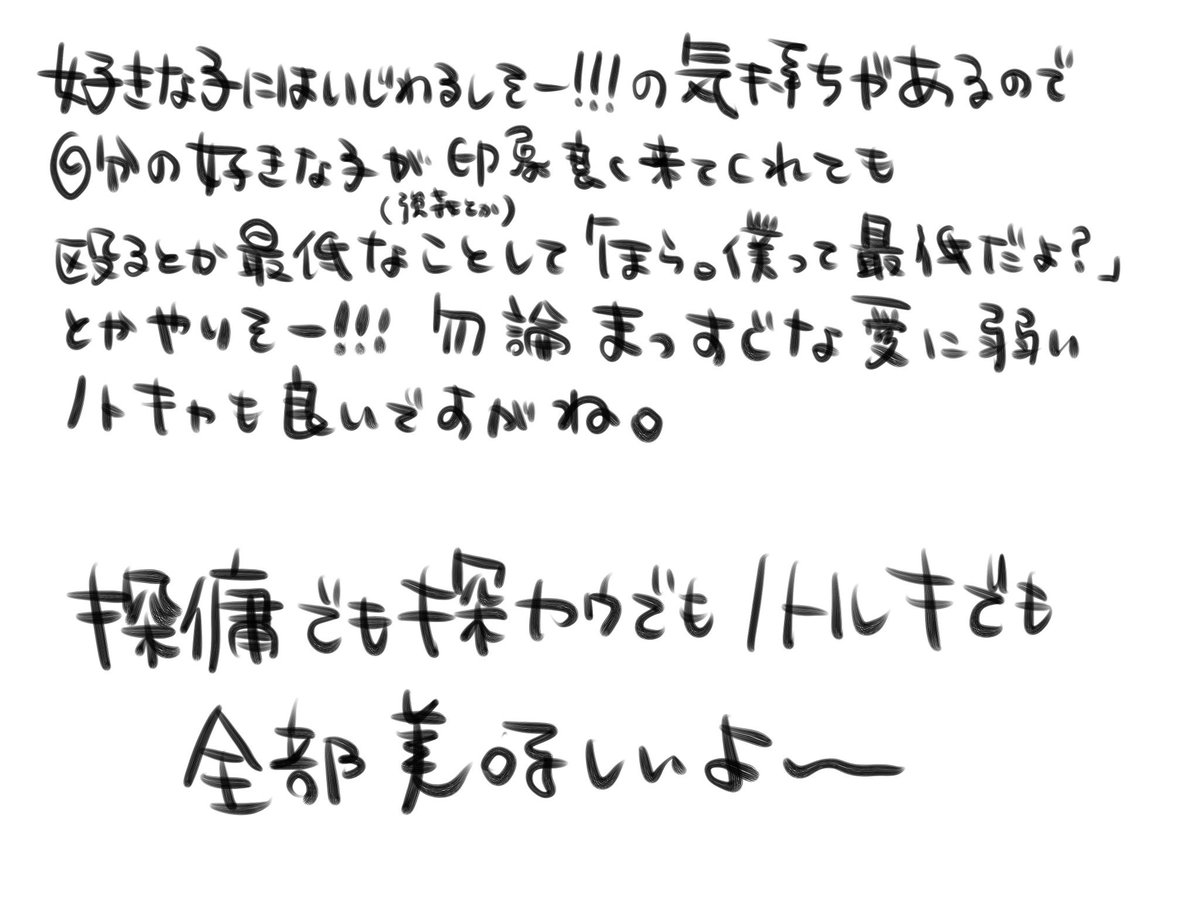 好きな子にはいじわるしそー!!!の気持ちがあるので
自分の好きな子が印象良く来てくれても
(強盗とか)
殴るとか最低なことして「ほら。僕って最低だよ?」
とかやりそー!!! 勿論まっすぐな愛に弱い
ノトキャも良いですがね。
探傭でも探カウでもノトルキでも
全部美味しいよ〜